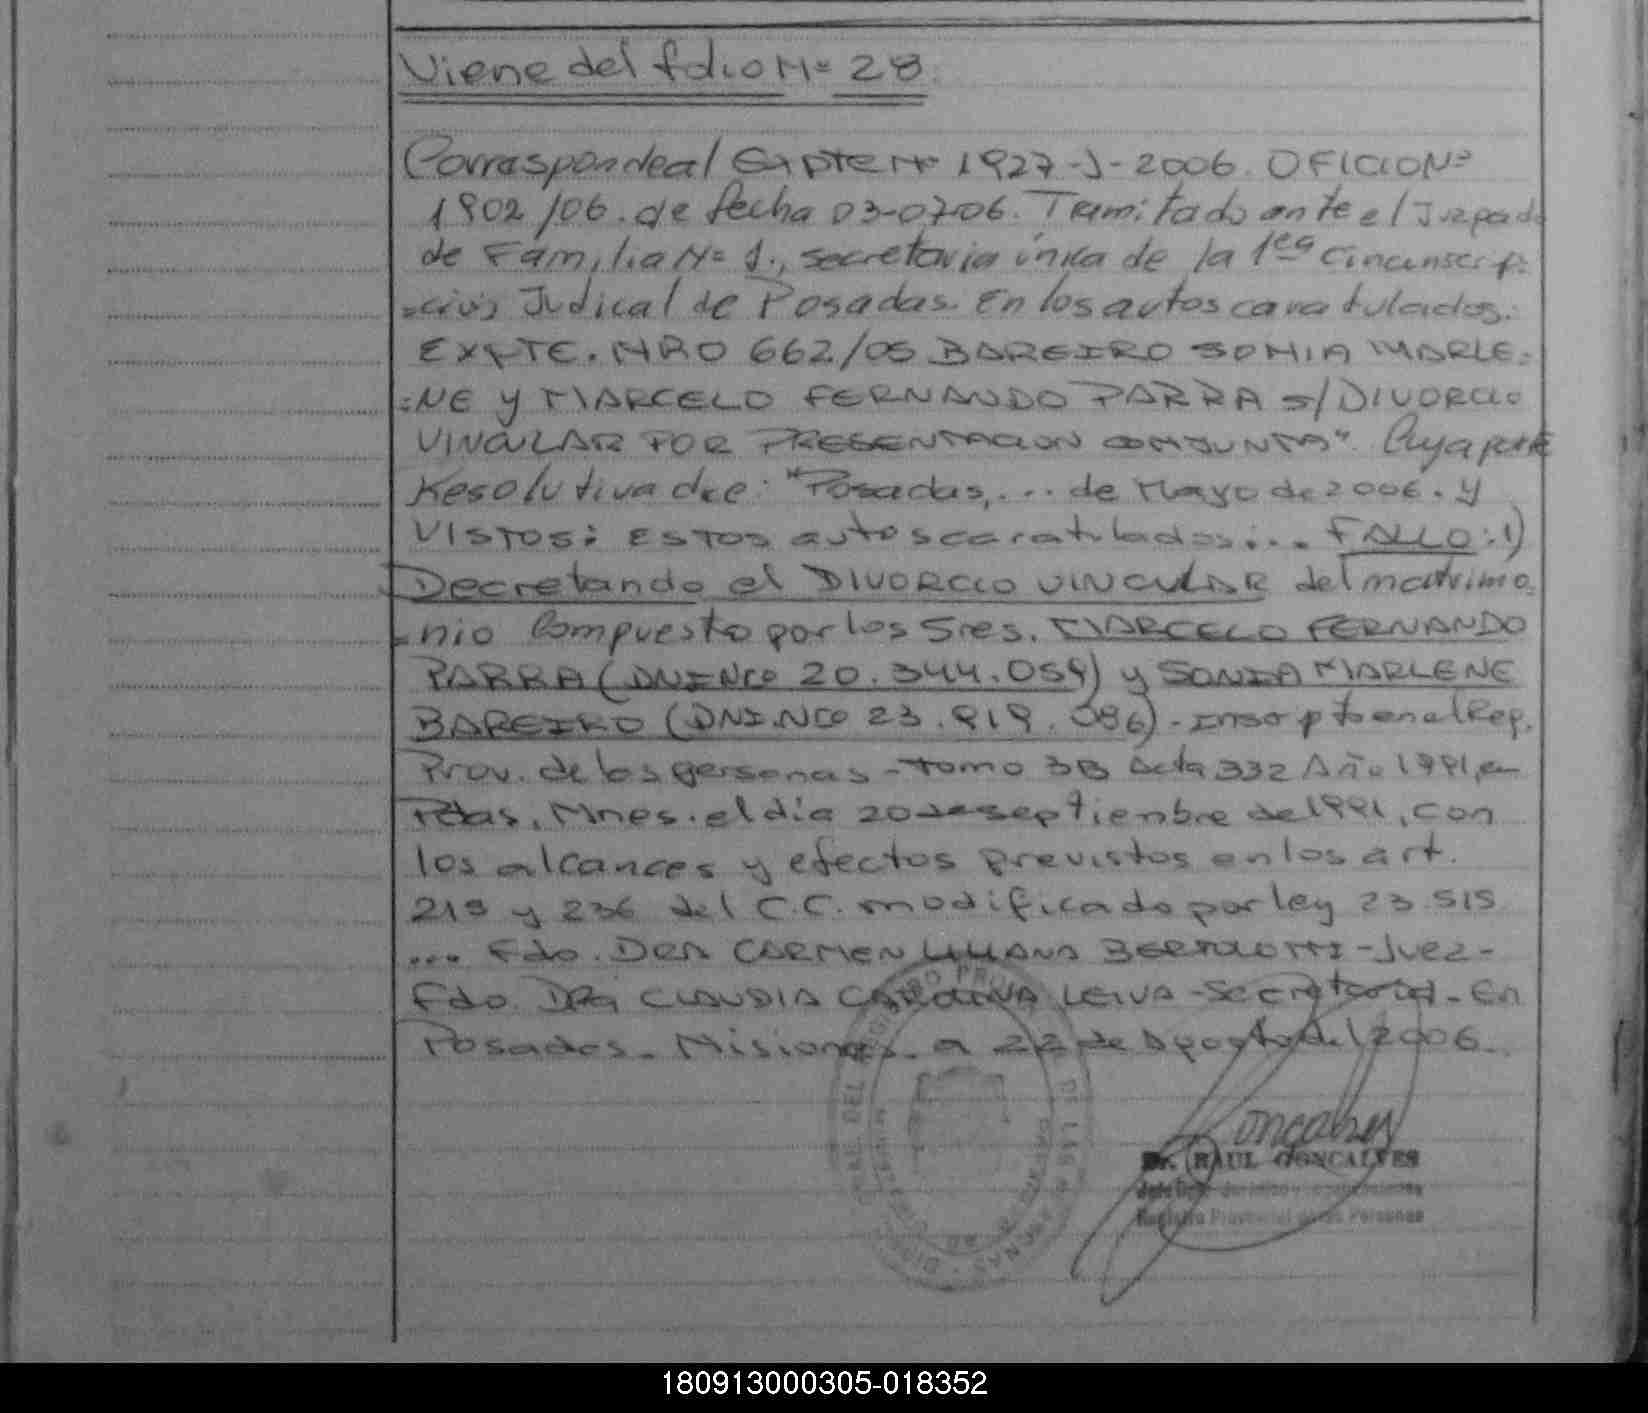 Viene del folio Nº 28.
Corresponde al Expte Nº 1927-J-2006. OFICIO Nº
1902/06. de fecha 03-07-06. Tramitado ante el Juzgado
de Familia Nº 1., secretaria única de la 1era Circunscrip:
=ción Judical de Posadas. En los autos caratulados.
EXPTE. NRO 662/05 BAREIRO SONIA MARLE=
=NE y MARCELO FERNANDO PARRA s/ DIVORCIO
VINCULAR POR PRESENTACION CONJUNTA". Cuya parte
Resolutiva dice: "Posadas, ... de Mayo de 2006. y
VISTOS: ESTOS autos caratulados:... FALLO: 1)
Decretando el DIVORCIO VINCULAR del matrimo=
=nio Compuesto por los Sres. MARCELO FERNANDO
PARRA (DNI NRO 20.344.059) y SONIA MARLENE
BAREIRO (DNI.NRO 23.919.086) - Inscripto en el Reg.
Prov. de las personas - tomo 3B Acta 332 Año 1991, en
Pdas, Mnes. el día 20 de septiembre de 1991, con
los alcances y efectos previstos en los art.
213 y 236 del C.C. modificado por ley 23.515
... Fdo. DRA CARMEN LILIANA BERTOLOTTI - Juez -
Fdo. DRA CLAUDIA CAROLINA LEIVA - Secretaria - En
Posadas. Misiones. a 22 de Agosto del 2006.
Goncalves
Dr. RAUL GONCALVES
Registro Provincial de las Personas
180913000305-018352